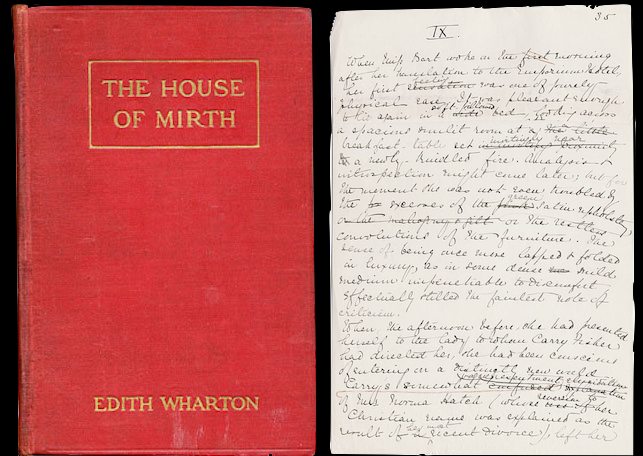 THE HOUSE
OF MIRTH
EDITH WHARTON
35
IX.
When Miss Bart woke on the first morning
after her translation to the Emporium Hotel,
her first sensation feeling was one of purely
physical ease. It was pleasant enough
to lie again in a soft pillowed bed, looking across
a spacious sunlit room at a little
breakfast-table set invitingly near
to a newly-kindled fire. Analysis &
introspection might come later; but for
the moment she was not even troubled by
the excesses of the green satin upholstery,
or the mahogany & gilt or the restless
convolutions of the furniture. The
sense of being once more lapped & folded
in luxury, as in some dense mild
medium impenetrable to discomfort
effectually stilled the faintest note of
criticism.
When, the afternoon before, she had presented
herself to the lady to whom Carry Fisher
had directed her, she had been conscious
of entering on a distinctly new world
vague presentment elucidation
Carry's somewhat confused explanation
reversion to
of Mrs Norma Hatch (whose her
Christian name was explained as the
her most
result of a recent divorce), left her